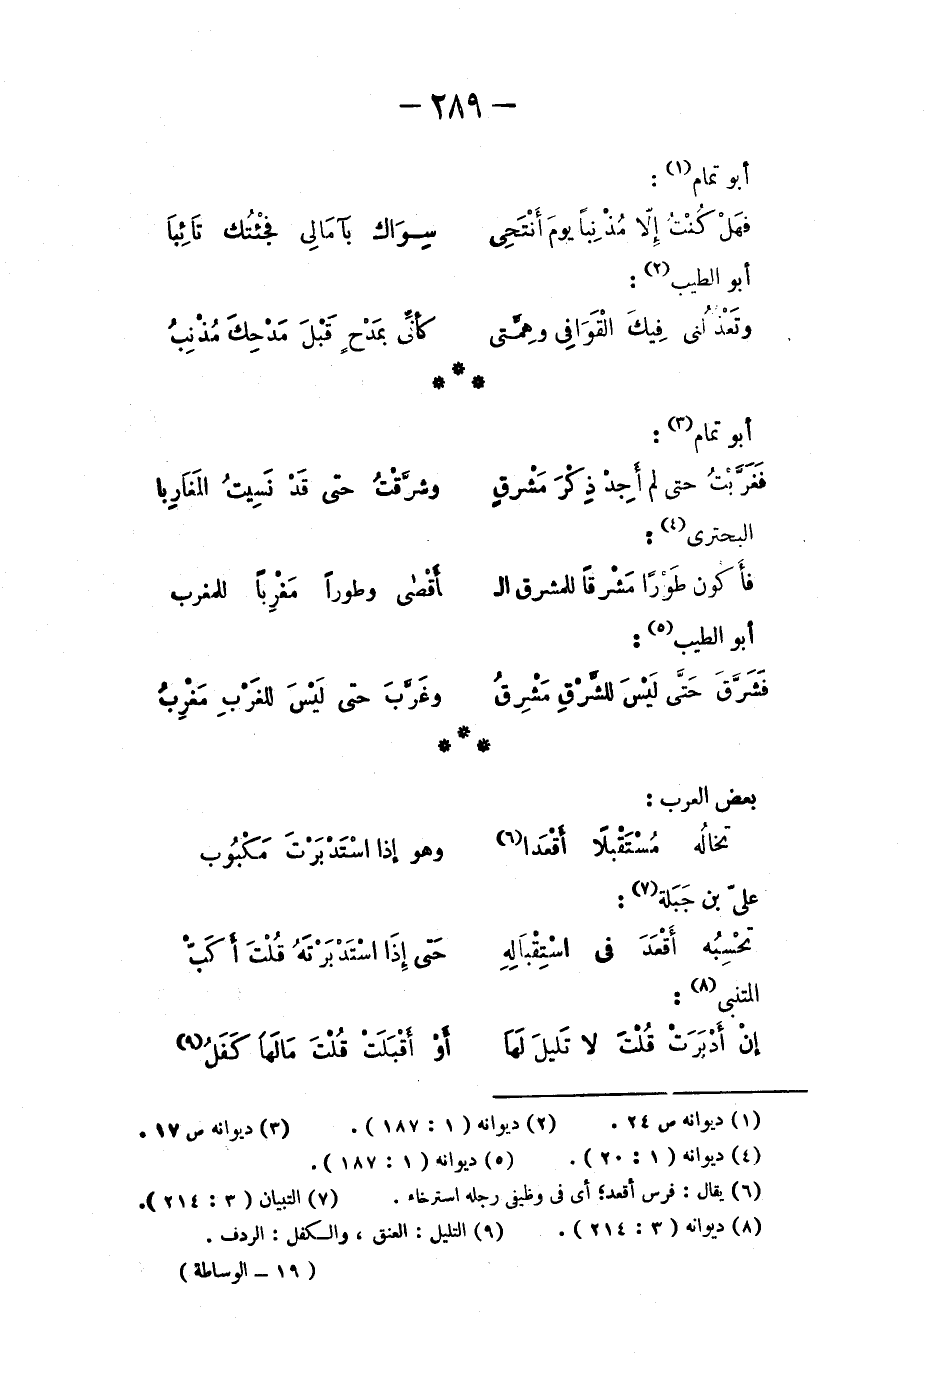 — ٢٨٩ —
أبو تمام(١) :
فهَلْ كُنْتُ إلّا مُذْنِباً يومَ أَنْتَحِى سِوَاك بآمَالِى فَجِئْتُك تَائِباَ
أبو الطيب(٢) :
وتَعْذُلُنى فِيكَ الْقَوَافِى وهِمَّتى كأنِّى بمَدْحٍ قَبْلَ مَدْحِكَ مُذْنِبُ
***
أبو تمام(٣) :
فَغَرَّبْتُ حتى لم أَجِدْ ذِكْرَ مَشْرقٍ وشرَّقْتُ حتّى قَدْ نَسِيتُ المَغَارِبا
البحترى(٤) :
فأَكون طَوْرًا مَشْرقاً للمشرق الـ أَقْصٰى وطوراً مَغْرِباً للمغرب
أبو الطيب(٥) :
فَشَرَّقَ حَتَّى لَيْسَ للشَّرْقِ مَشْرِقُ وغَرَّبَ حتّى لَيْسَ للغَرْبِ مَغْرِبُ
***
بعض العرب :
تخالُه مُسْتَقْبِلًا أَقْعَدا(٦) وهو إذا اسْتَدْبَرْتَ مَكْبُوب
علىّ بن جَبَلة(٧) :
تحْسِبُه أَقْعَدَ فى اسْتِقْبَالِهِ حَتّى إِذَا اسْتَدْبَرْتَهُ قُلْتَ أكَبّْ
المتنبى(٨) :
إنْ أَدْبَرَتْ قُلْتَ لا تَليلَ لَهَا أَوْ أَقْبَلَتْ قُلْتَ مَالَهَا كَفَلُ(٩)
(١) ديوانه ص ٢٤ . (٢) ديوانه ( ١ : ١٨٧ ) . (٣) ديوانه ص ١٧ .
(٤) ديوانه ( ١ : ٢٠ ) . (٥) ديوانه ( ١ : ١٨٧ ) .
(٦) يقال : فرس أقعد؛ أى فى وظيفى رجله استرخاء . (٧) التبيان ( ٣ : ٢١٤ ).
(٨) ديوانه ( ٣ : ٢١٤ ) . (٩) التليل : العنق ، والكفل : الردف .
( ١٩ — الوساطة )